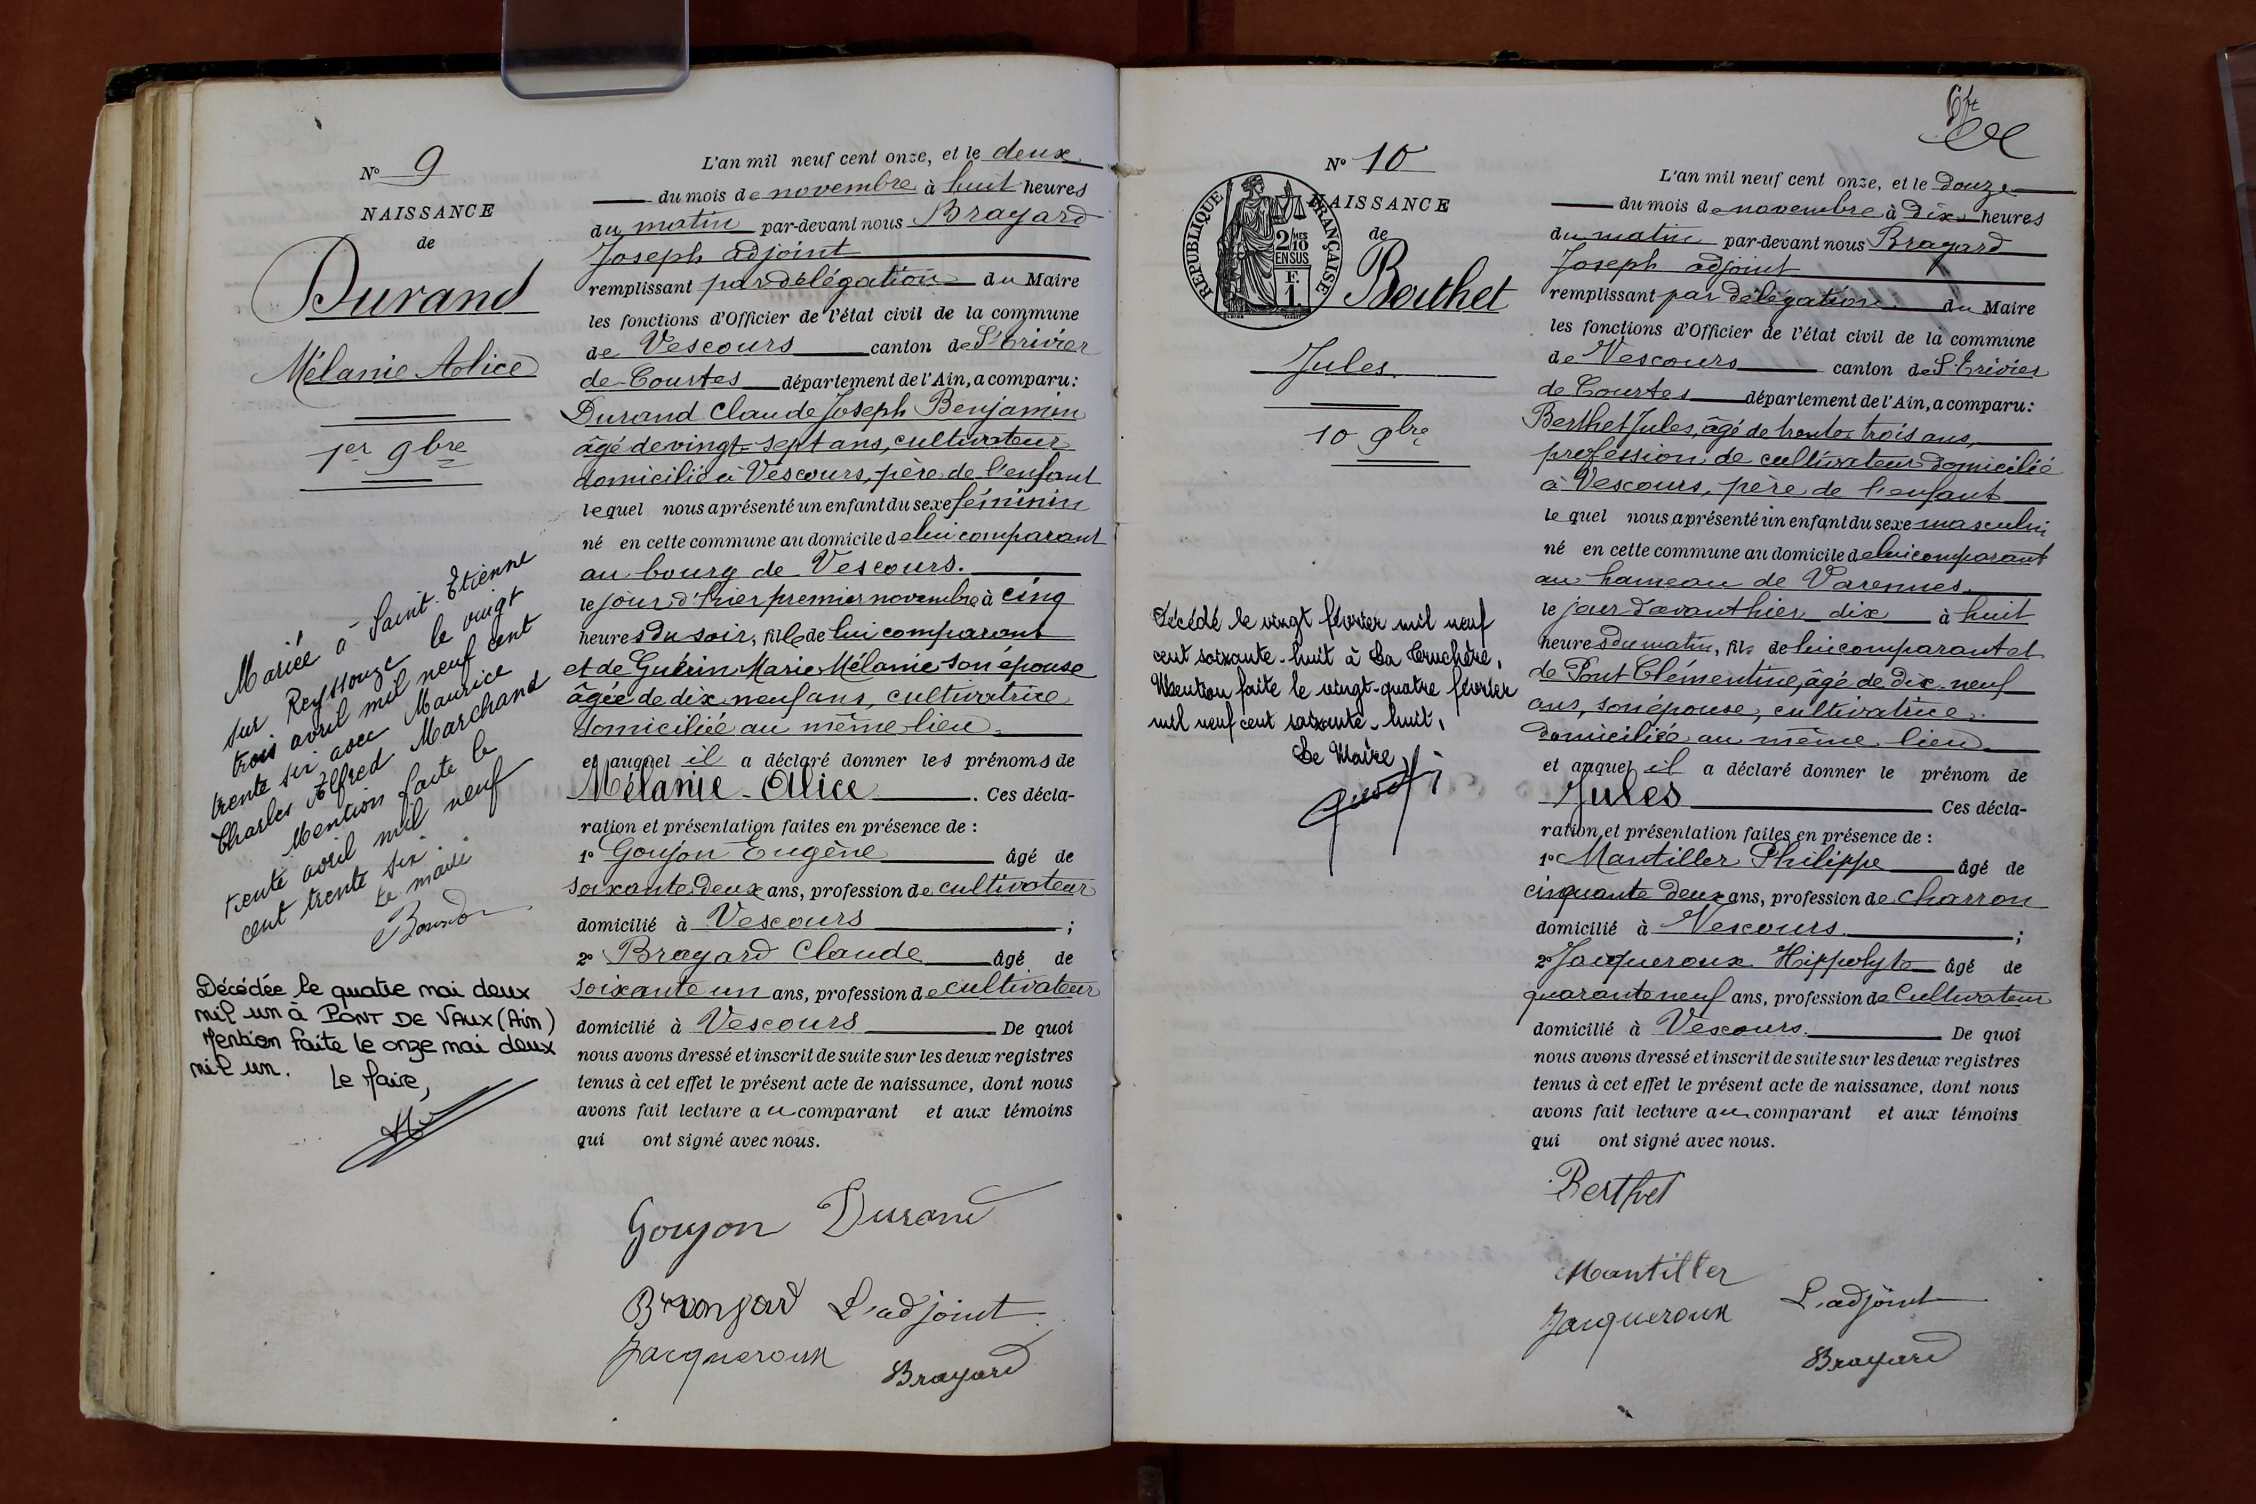 N° 9
NAISSANCE
de
Durand
Mélanie Alice
1er 9bre
Mariée à Saint-Etienne
sur Reyssouze le vingt
trois avril mil neuf cent
trente six avec Maurice
Charles Alfred Marchand
Mention faite le
trente avril mil neuf
cent trente six.
Le maire
Décédée le quatre mai deux
mil un à PONT DE VAUX (Ain)
Mention faite le onze mai deux
mil un.
Le Maire,
L'an mil neuf cent onze, et le deux
du mois de novembre à huit heures
du matin par-devant nous Brayard
Joseph adjoint
remplissant par délégation du Maire
les fonctions d'Officier de l'état civil de la commune
de Vescours canton de St Trivier
de Courtes département de l'Ain, a comparu:
Durand Claude Joseph Benjamin
âgé de vingt-sept ans, cultivateur
domicilié à Vescours, père de l'enfant
lequel nous a présenté un enfant du sexe féminin
né en cette commune au domicile de lui comparant
au bourg de Vescours.
le jour d'hier premier novembre à cinq
heures du soir, fille de lui comparant
et de Guérin Marie Mélanie son épouse
âgée de dix neuf ans, cultivatrice
domiciliée au même lieu.
et auquel il a déclaré donner les prénoms de
Mélanie-Alice. Ces décla-
ration et présentation faites en présence de :
1° Goujon Eugène âgé de
soixante deux ans, profession de cultivateur
domicilié à Vescours ;
2° Brayard Claude âgé de
soixante un ans, profession de cultivateur
domicilié à Vescours De quoi
nous avons dressé et inscrit de suite sur les deux registres
tenus à cet effet le présent acte de naissance, dont nous
avons fait lecture au comparant et aux témoins
qui ont signé avec nous.
Goujon Durand
Brayard L'adjoint
Jacqueroux Brayard
N° 10
NAISSANCE
de
RÉPUBLIQUE FRANÇAISE
2/10 MES
EN SUS
F.
1.
Berthet
Jules
10 9bre
Décédé le vingt février mil neuf
cent soixante-huit à La Truchère.
Mention faite le vingt-quatre février
mil neuf cent soixante-huit.
Le Maire
L'an mil neuf cent onze, et le douze
du mois de novembre à dix heures
du matin par-devant nous Brayard
Joseph adjoint
remplissant par délégation du Maire
les fonctions d'Officier de l'état civil de la commune
de Vescours canton de St Trivier
de Courtes département de l'Ain, a comparu:
Berthet Jules, âgé de trente-trois ans,
profession de cultivateur domicilié
à Vescours, père de l'enfant
lequel nous a présenté un enfant du sexe masculin
né en cette commune au domicile de lui comparant
au hameau de Varennes.
le jour d'avant hier dix à huit
heures du matin, fils de lui comparant et
de Pont Clémentine, âgé de dix-neuf
ans, son épouse, cultivatrice.
domiciliée au même lieu.
et auquel il a déclaré donner le prénom de
Jules Ces décla-
ration et présentation faites en présence de :
1° Mantiller Philippe âgé de
cinquante deux ans, profession de charron
domicilié à Vescours ;
2° Jacqueroux Hippolyte âgé de
quarante neuf ans, profession de Cultivateur
domicilié à Vescours. De quoi
nous avons dressé et inscrit de suite sur les deux registres
tenus à cet effet le présent acte de naissance, dont nous
avons fait lecture au comparant et aux témoins
qui ont signé avec nous.
Berthet
Mantiller
Jacqueroux L'adjoint
Brayard